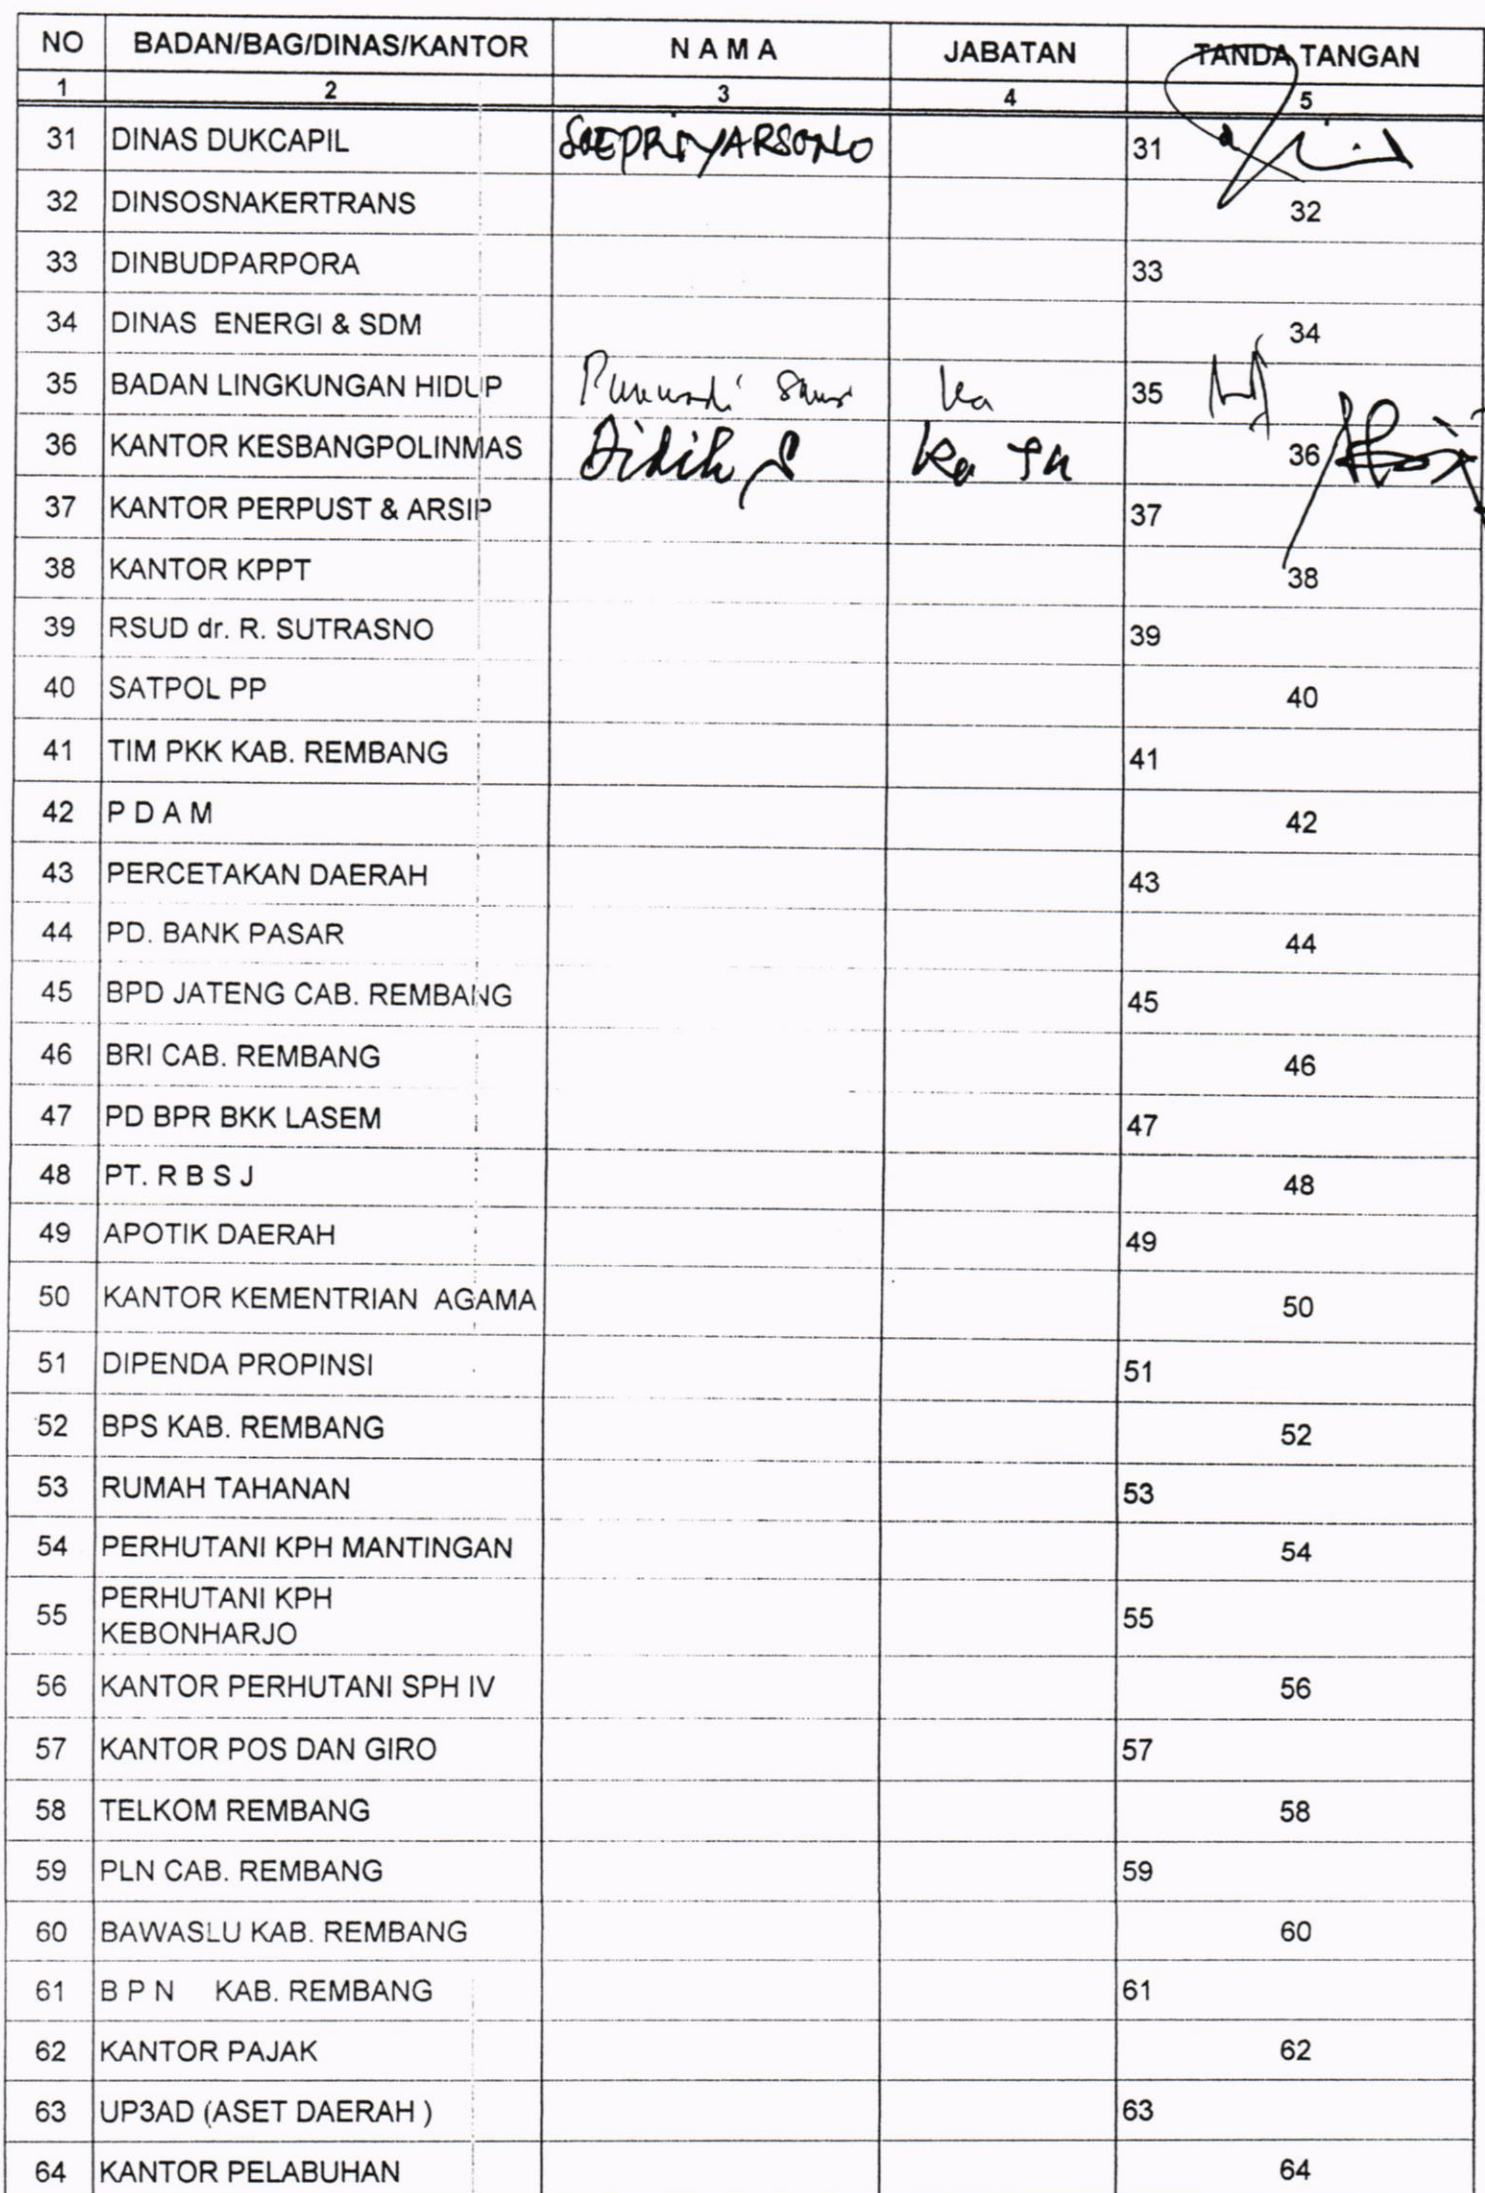 NO BADAN/BAG/DINAS/KANTOR N A M A JABATAN TANDA TANGAN
1 2 3 4 5
31 DINAS DUKCAPIL SOEPRIYARSONO 31
32 DINSOSNAKERTRANS 32
33 DINBUDPARPORA 33
34 DINAS ENERGI & SDM 34
35 BADAN LINGKUNGAN HIDUP Ka 35
36 KANTOR KESBANGPOLINMAS Didik S Ka 36
37 KANTOR PERPUST & ARSIP 37
38 KANTOR KPPT 38
39 RSUD dr. R. SUTRASNO 39
40 SATPOL PP 40
41 TIM PKK KAB. REMBANG 41
42 P D A M 42
43 PERCETAKAN DAERAH 43
44 PD. BANK PASAR 44
45 BPD JATENG CAB. REMBANG 45
46 BRI CAB. REMBANG 46
47 PD BPR BKK LASEM 47
48 PT. R B S J 48
49 APOTIK DAERAH 49
50 KANTOR KEMENTRIAN AGAMA 50
51 DIPENDA PROPINSI 51
52 BPS KAB. REMBANG 52
53 RUMAH TAHANAN 53
54 PERHUTANI KPH MANTINGAN 54
55 PERHUTANI KPH 55
KEBONHARJO
56 KANTOR PERHUTANI SPH IV 56
57 KANTOR POS DAN GIRO 57
58 TELKOM REMBANG 58
59 PLN CAB. REMBANG 59
60 BAWASLU KAB. REMBANG 60
61 B P N KAB. REMBANG 61
62 KANTOR PAJAK 62
63 UP3AD (ASET DAERAH ) 63
64 KANTOR PELABUHAN 64